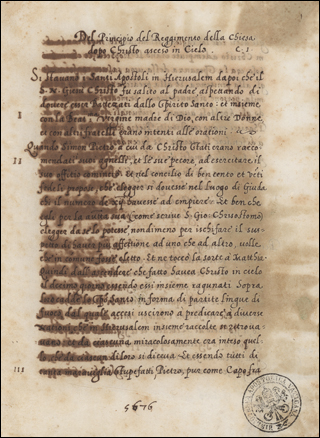 Del Principio del Reggimento della Chiesa
dopo Christo asceso in Cielo. C. 1
Si stauano i Santi Apostoli in Hierusalem da poi che il
S. N. Giesu Christo fu salito al padre aspettando di
douere esser battezati dallo Spirito Santo: et insieme
I
con la Beata Vergine madre di Dio, con altre Donne
et con altri fratelli erano intenti alle orationi.
II
Quando Simon Pietro, a cui da Christo stati erano racco-
mandati suoi agnelli, et le sue pecore, ad esercitare il
suo officio cominciò. Et nel concilio di ben cento et uenti
fedeli propose, che elegger si douesse nel luogo di Giuda
che il numero de XII hauesse ad empiere. Et ben che
egli per la autta sua, come scriue S. Gio: Chrisostomo,
elegger da se lo potesse, nondimeno per ischifare il sus-
petto di hauer piu affettione ad uno che ad altro, uolle
che in comune fosse eletto. Et ne toccò la sorte a Matthia.
Quindi dall'ascendere che fatto hauea Christo in cielo
il decimo giorno essendo essi insieme ragunati sopra
lor cadde lo Spo Santo in forma di partite lingue di
fuoco, dal quale accesi uscirono a predicare a diuerse
nationi, che in Hierusalem insieme raccolte si retroua-
uano: et da ciascuna miracolosamente era inteso quel-
lo, che da ciascun di loro si diceua. Et essendo tutti di
III
questa marauiglia stupefatti Pietro, pur come Capo fra
5676